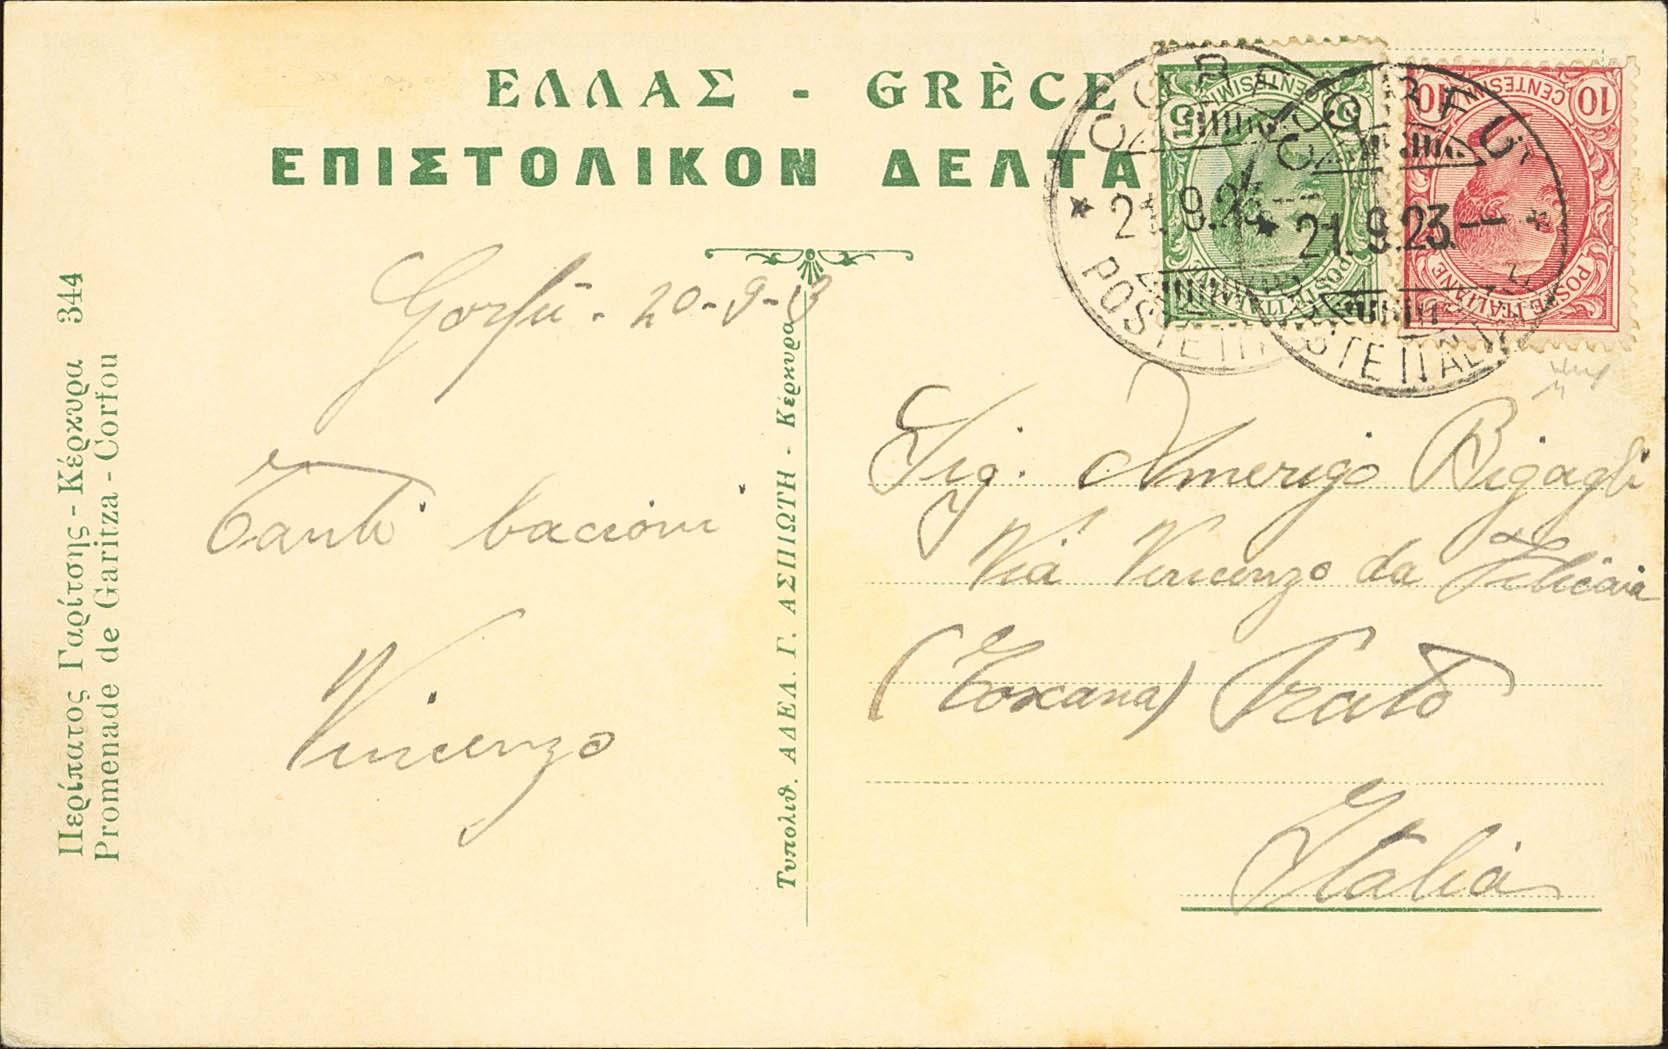 ΕΛΛΑΣ - GRÈCE
ΕΠΙΣΤΟΛΙΚΟΝ ΔΕΛΤΑ
Περίπατος Γαρίτσης - Κέρκυρα 344
Promenade de Garitza - Corfou
Τυπολιθ. ΑΔΕΛ. Γ. ΑΣΠΙΩΤΗ - Κέρκυρα
Corfù - 20-9-23
Tanti bacioni
Vincenzo
CORFU
21.9.23
POSTE ITALIANE
5
CENTESIMI
POSTE ITALIANE
CORFU
21.9.23.
POSTE ITALIANE
10 CENTESIMI 10
POSTE ITALIANE
Sig. Amerigo Bigagli
Via Vincenzo da Filicaia
(Toscana) Prato
Italia